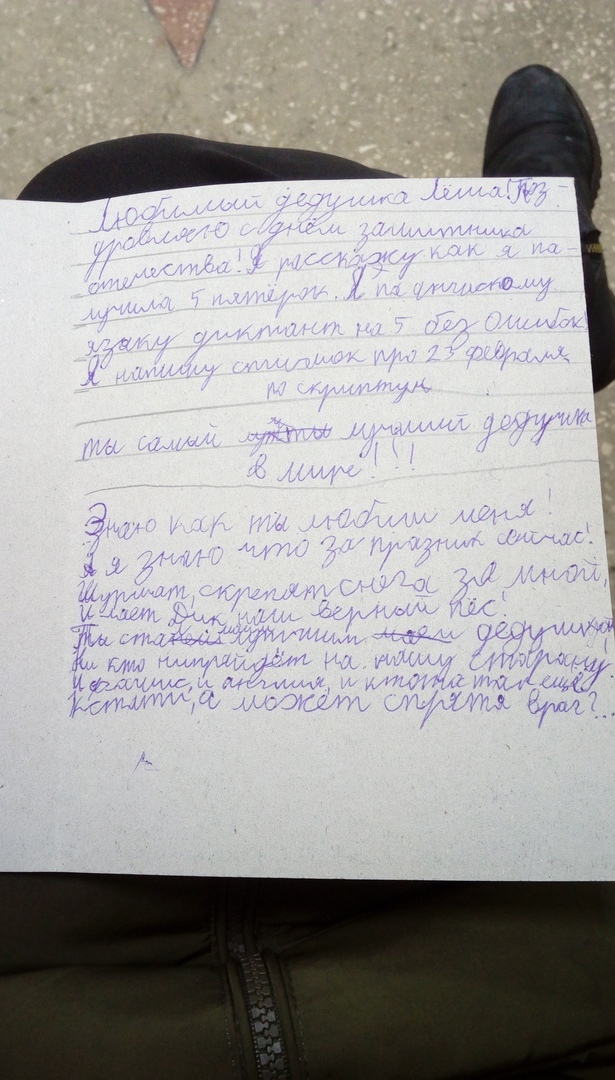 Любимый дедушка Лёша! Поз-
дровляю с днём защитника
отечества! Я расскажу как я па-
лучила 5 пятёрок. Я па
языку диктант на 5 без Ошибок
Я напишу стишок про 23 февраля
по скриптун
ты самый лучший дедушка
в мире!!!
Знаю как ты любиш меня!
я знаю что за празник сейчас!
Шуршат, скрепят снега за мной,
И лает Дик, наш верный пёс!
Ты дедушка
Ни кто нипрайдёт на нашу сторону!
и англия, и ктота там ещё
кстати, а может спрятя враг?..